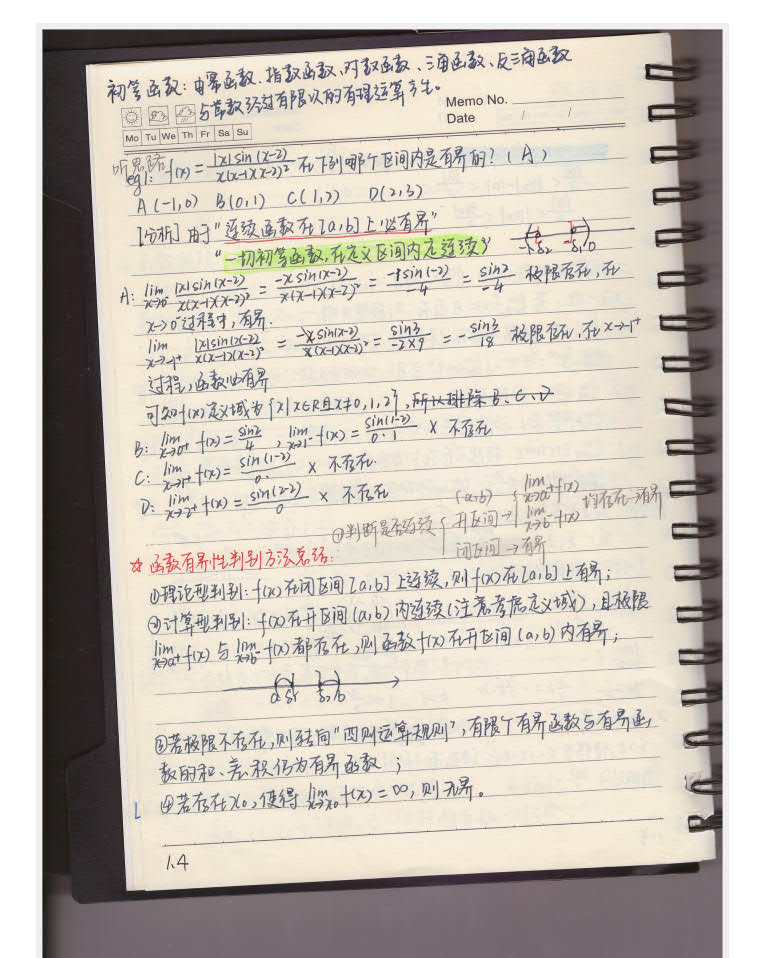 初等函数：由幂函数、指数函数、对数函数、三角函数、反三角函数
与常数经过有限次的有理运算产生。
Memo No.
Date / /
Mo Tu We Th Fr Sa Su
听思路
eg1: f(x) = |x|sin(x-2) / x(x-1)(x-2)² 在下列哪个区间内是有界的？(A)
A(-1,0) B(0,1) C(1,2) D(2,3)
[分析] 由于"连续函数在[a,b]上必有界"
"一切初等函数,在定义区间内定连续"
-1 δ₂ -δ₁ 0
A: lim x→0⁻ |x|sin(x-2) / x(x-1)(x-2)² = -x sin(x-2) / x(x-1)(x-2)² = -1 sin(-2) / -4 = sin2 / -4 极限存在,在
x→0⁻过程中,有界.
lim x→-1⁺ |x|sin(x-2) / x(x-1)(x-2)² = -x sin(x-2) / x(x-1)(x-2)² = sin3 / -2×9 = -sin3 / 18 极限存在,在x→-1⁺
过程,函数必有界
可知f(x)定义域为{x|x∈R且x≠0,1,2},所以排除B、C、D
B: lim x→0⁺ f(x) = sin2 / 4 , lim x→1⁻ f(x) = sin(1-2) / 0·1 × 不存在
C: lim x→1⁺ f(x) = sin(1-2) / 0· × 不存在.
D: lim x→2⁺ f(x) = sin(2-2) / 0 × 不存在
①判断是否连续 { (a,b) 开区间→ { lim x→a⁺ f(x) lim x→b⁻ f(x) 均存在→有界
闭区间→有界
☆ 函数有界性判别方法总结：
①理论型判别：f(x)在闭区间[a,b]上连续,则f(x)在[a,b]上有界；
②计算型判别：f(x)在开区间(a,b)内连续(注意考虑定义域),且极限
lim x→a⁺ f(x) 与 lim x→b⁻ f(x)都存在,则函数f(x)在开区间(a,b)内有界；
a δ₁ δ₂ b
③若极限不存在,则转向"四则运算规则",有限个有界函数与有界函
数的和、差、积仍为有界函数；
④若存在x₀,使得 lim x→x₀ f(x) = ∞,则无界。
1.4